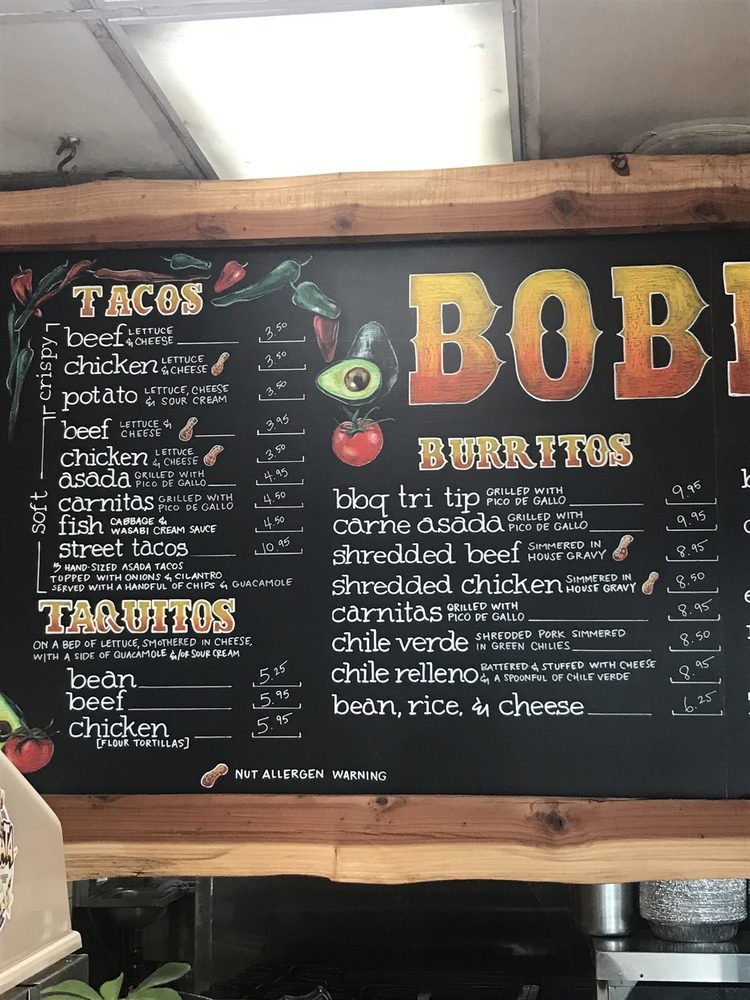 TACOS
crispy
beef LETTUCE & CHEESE 3.50
chicken LETTUCE & CHEESE 3.50
potato LETTUCE, CHEESE & SOUR CREAM 3.50
soft
beef LETTUCE & CHEESE 3.95
chicken LETTUCE & CHEESE 3.50
asada GRILLED WITH PICO DE GALLO 4.95
carnitas GRILLED WITH PICO DE GALLO 4.50
fish CABBAGE & WASABI CREAM SAUCE 4.50
street tacos 10.95
HAND-SIZED ASADA TACOS
TOPPED WITH ONIONS & CILANTRO
SERVED WITH A HANDFUL OF CHIPS & GUACAMOLE
TAQUITOS
ON A BED OF LETTUCE, SMOTHERED IN CHEESE,
WITH A SIDE OF GUACAMOLE &/OR SOUR CREAM
bean 5.25
beef 5.95
chicken 5.95
[FLOUR TORTILLAS]
NUT ALLERGEN WARNING
BOB
BURRITOS
bbq tri tip GRILLED WITH PICO DE GALLO 9.95
carne asada GRILLED WITH PICO DE GALLO 9.95
shredded beef SIMMERED IN HOUSE GRAVY 8.95
shredded chicken SIMMERED IN HOUSE GRAVY 8.50
carnitas GRILLED WITH PICO DE GALLO 8.95
chile verde SHREDDED PORK SIMMERED IN GREEN CHILIES 8.50
chile relleno BATTERED & STUFFED WITH CHEESE & A SPOONFUL OF CHILE VERDE 8.95
bean, rice, & cheese 6.25